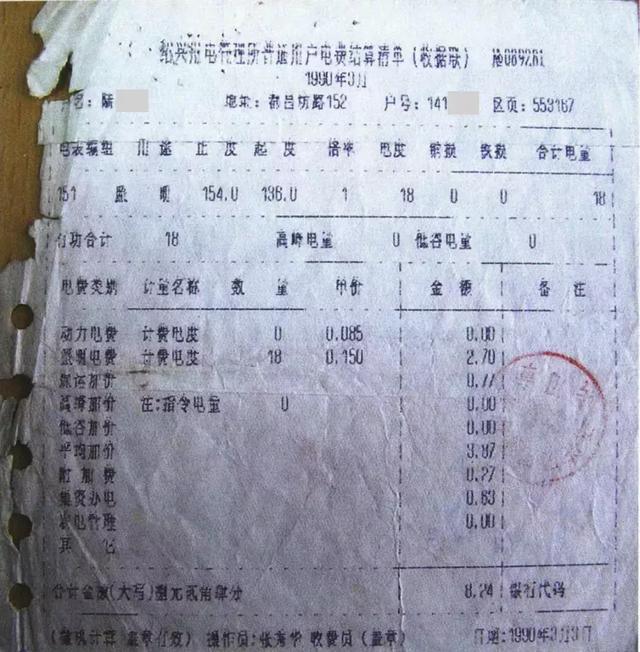 绍兴供电管理所普通用户电费结算清单(收据联) №089281
1990年3月
户名:陆 地址:都昌坊路152 户号:141 区页:553167
电表编组 用途 止度 起度 倍率 电度 铜损 铁损 合计电量
151 照明 154.0 136.0 1 18 0 0 18
有功合计 18 高峰电量 0 低谷电量 0
电费类别 计量名称 数量 单价 金额 备注
动力电费 计费电度 0 0.085 0.00
照明电费 计费电度 18 0.150 2.70
燃运加价 0.77
高峰加价 注:指令电量 0 0.00
低谷加价 0.00
平均加价 3.87
附加费 0.27
集资办电 0.63
农电管理 0.00
其它
合计金额(大写)捌元贰角肆分 8.24 银行代码
(微机计算 盖章有效) 操作员:张秀华 收费员(盖章) 日期:1990年3月3日